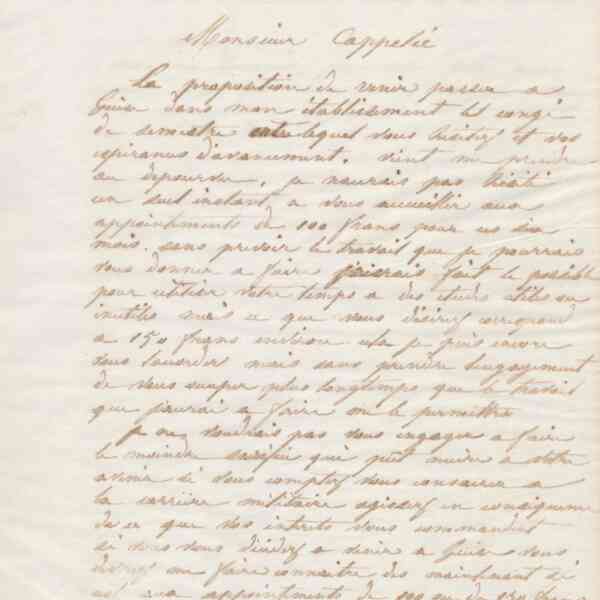 Monsieur Cappelié
La proposition de venir passer a
Guise dans mon établissement le congé
de semestre entre lequel vous hésitez et vos
espérances d'avancement, vient me prendre
au dépourvu, je n'aurais pas hésité
un seul instant a vous accueillir aux
appointements de 100 francs pour ces six
mois. sans prévoir le travail que je pourrais
vous donner a faire j'aurais fait le possible
pour utiliser votre temps a des études utiles ou
inutiles mais ce que vous désirez correspond
a 150 francs environ cela je puis encore
vous l'accorder mais sans prendre l'engagement
de vous occuper plus longtemps que le travail
que j'aurai a faire me le permettra
je ne voudrais pas vous engager a faire
le moindre sacrifice qui put nuire a votre
avenir si vous comptez vous consacrer a
la carrière militaire agissez en conséquence
de ce que vos intérêts vous commandent
si vous vous décidez a venir a Guise vous
devrez me faire connaitre dès maintenant si
est aux appointements de 100 ou de 150 francs